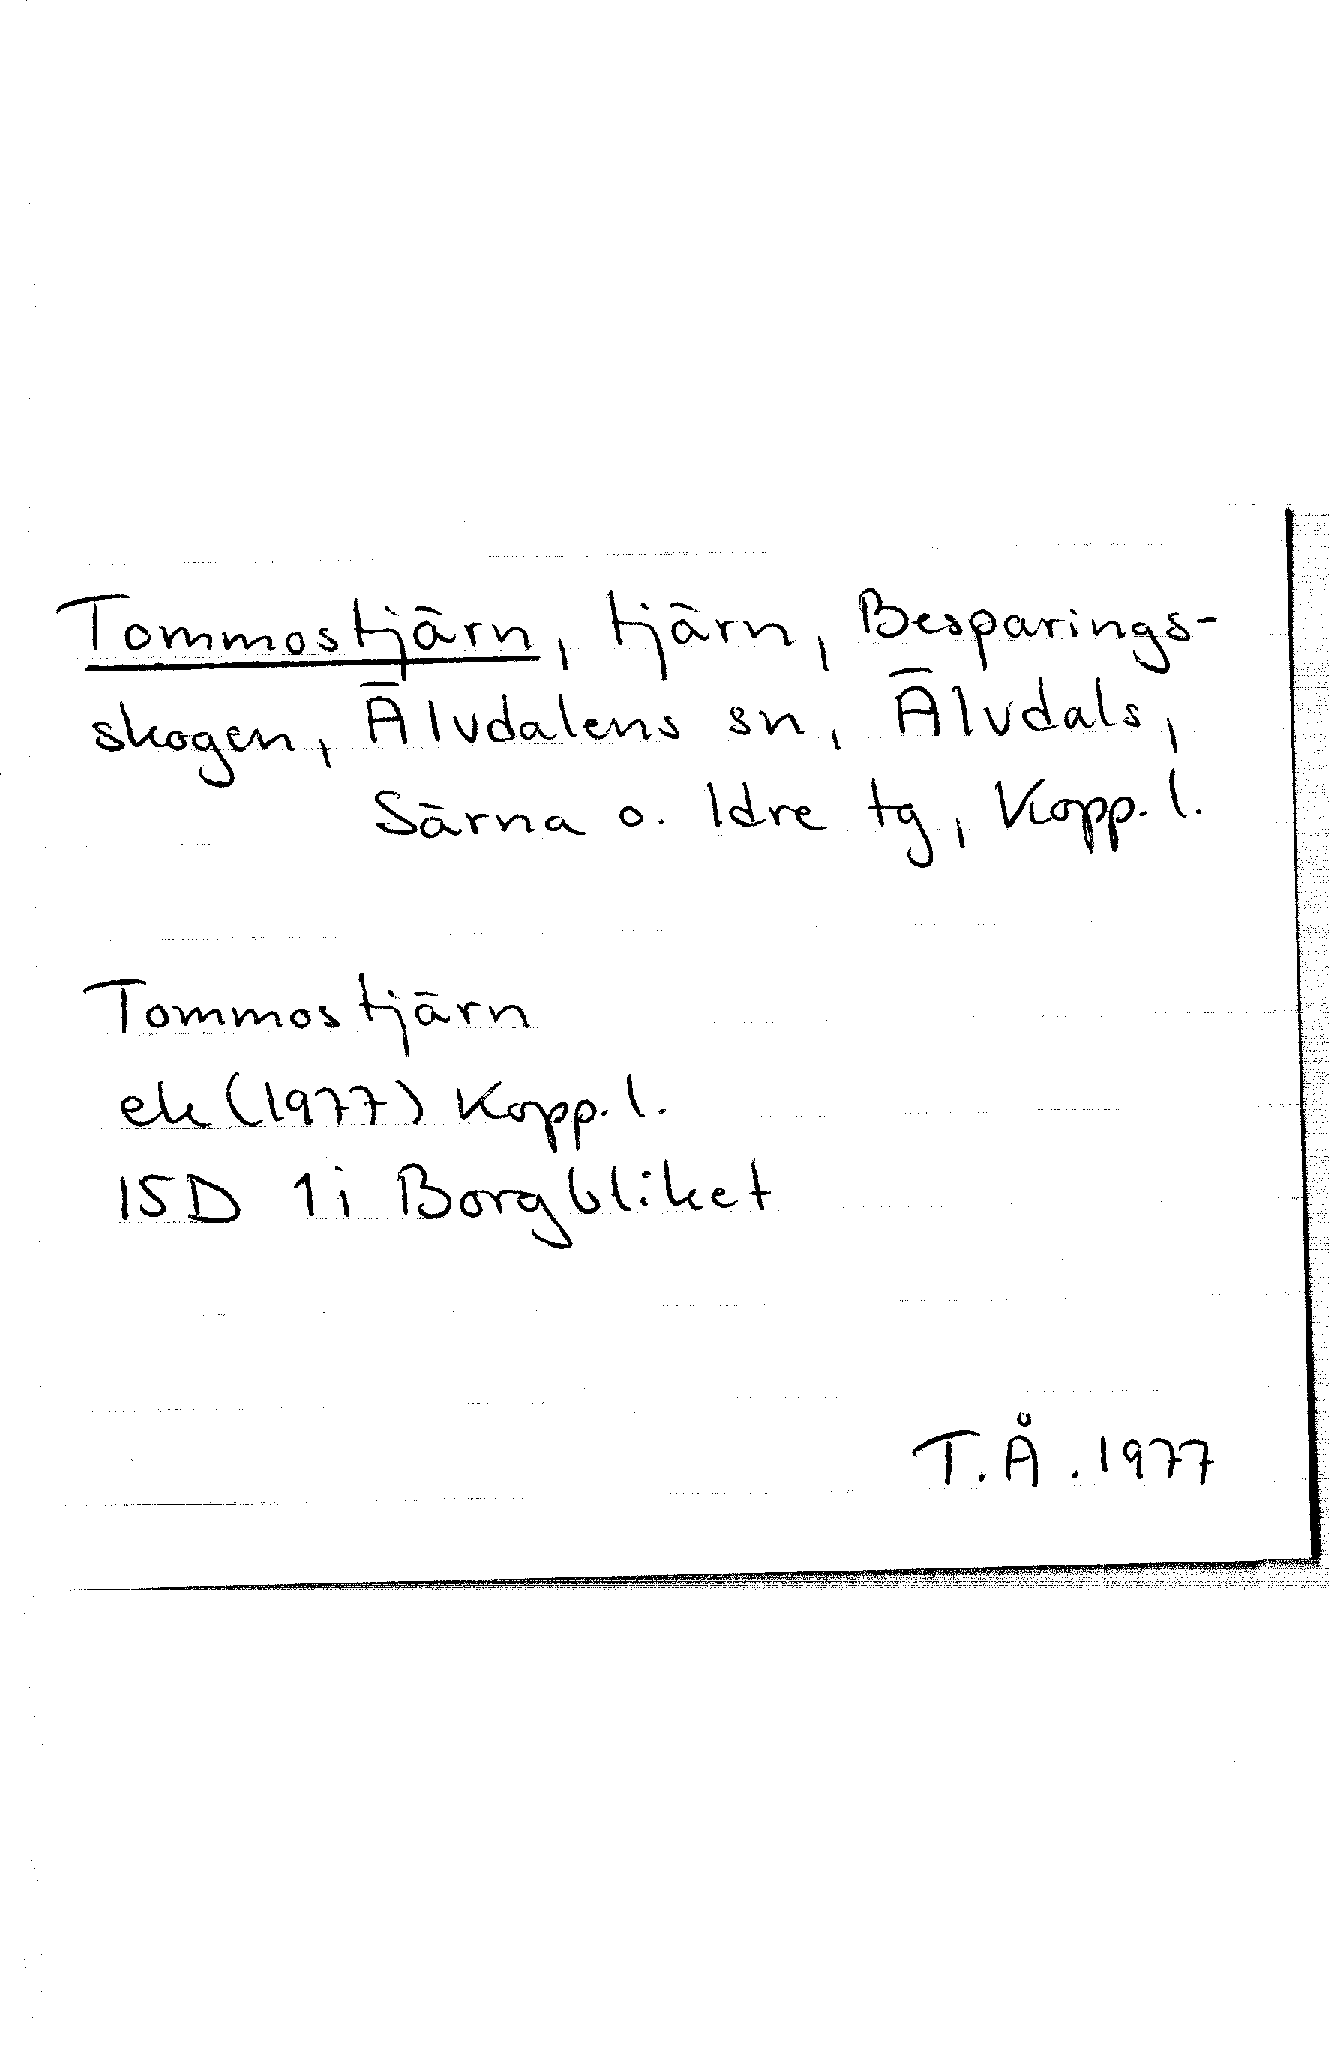 Tommostjärn, tjärn, Besparings-
skogen, Älvdalens sn, Älvdals,
Särna o. Idre tg, Kopp. l.
Tommostjärn
ek (1977) Kopp. l.
15D 1i Borgbliket
T.Å. 1977